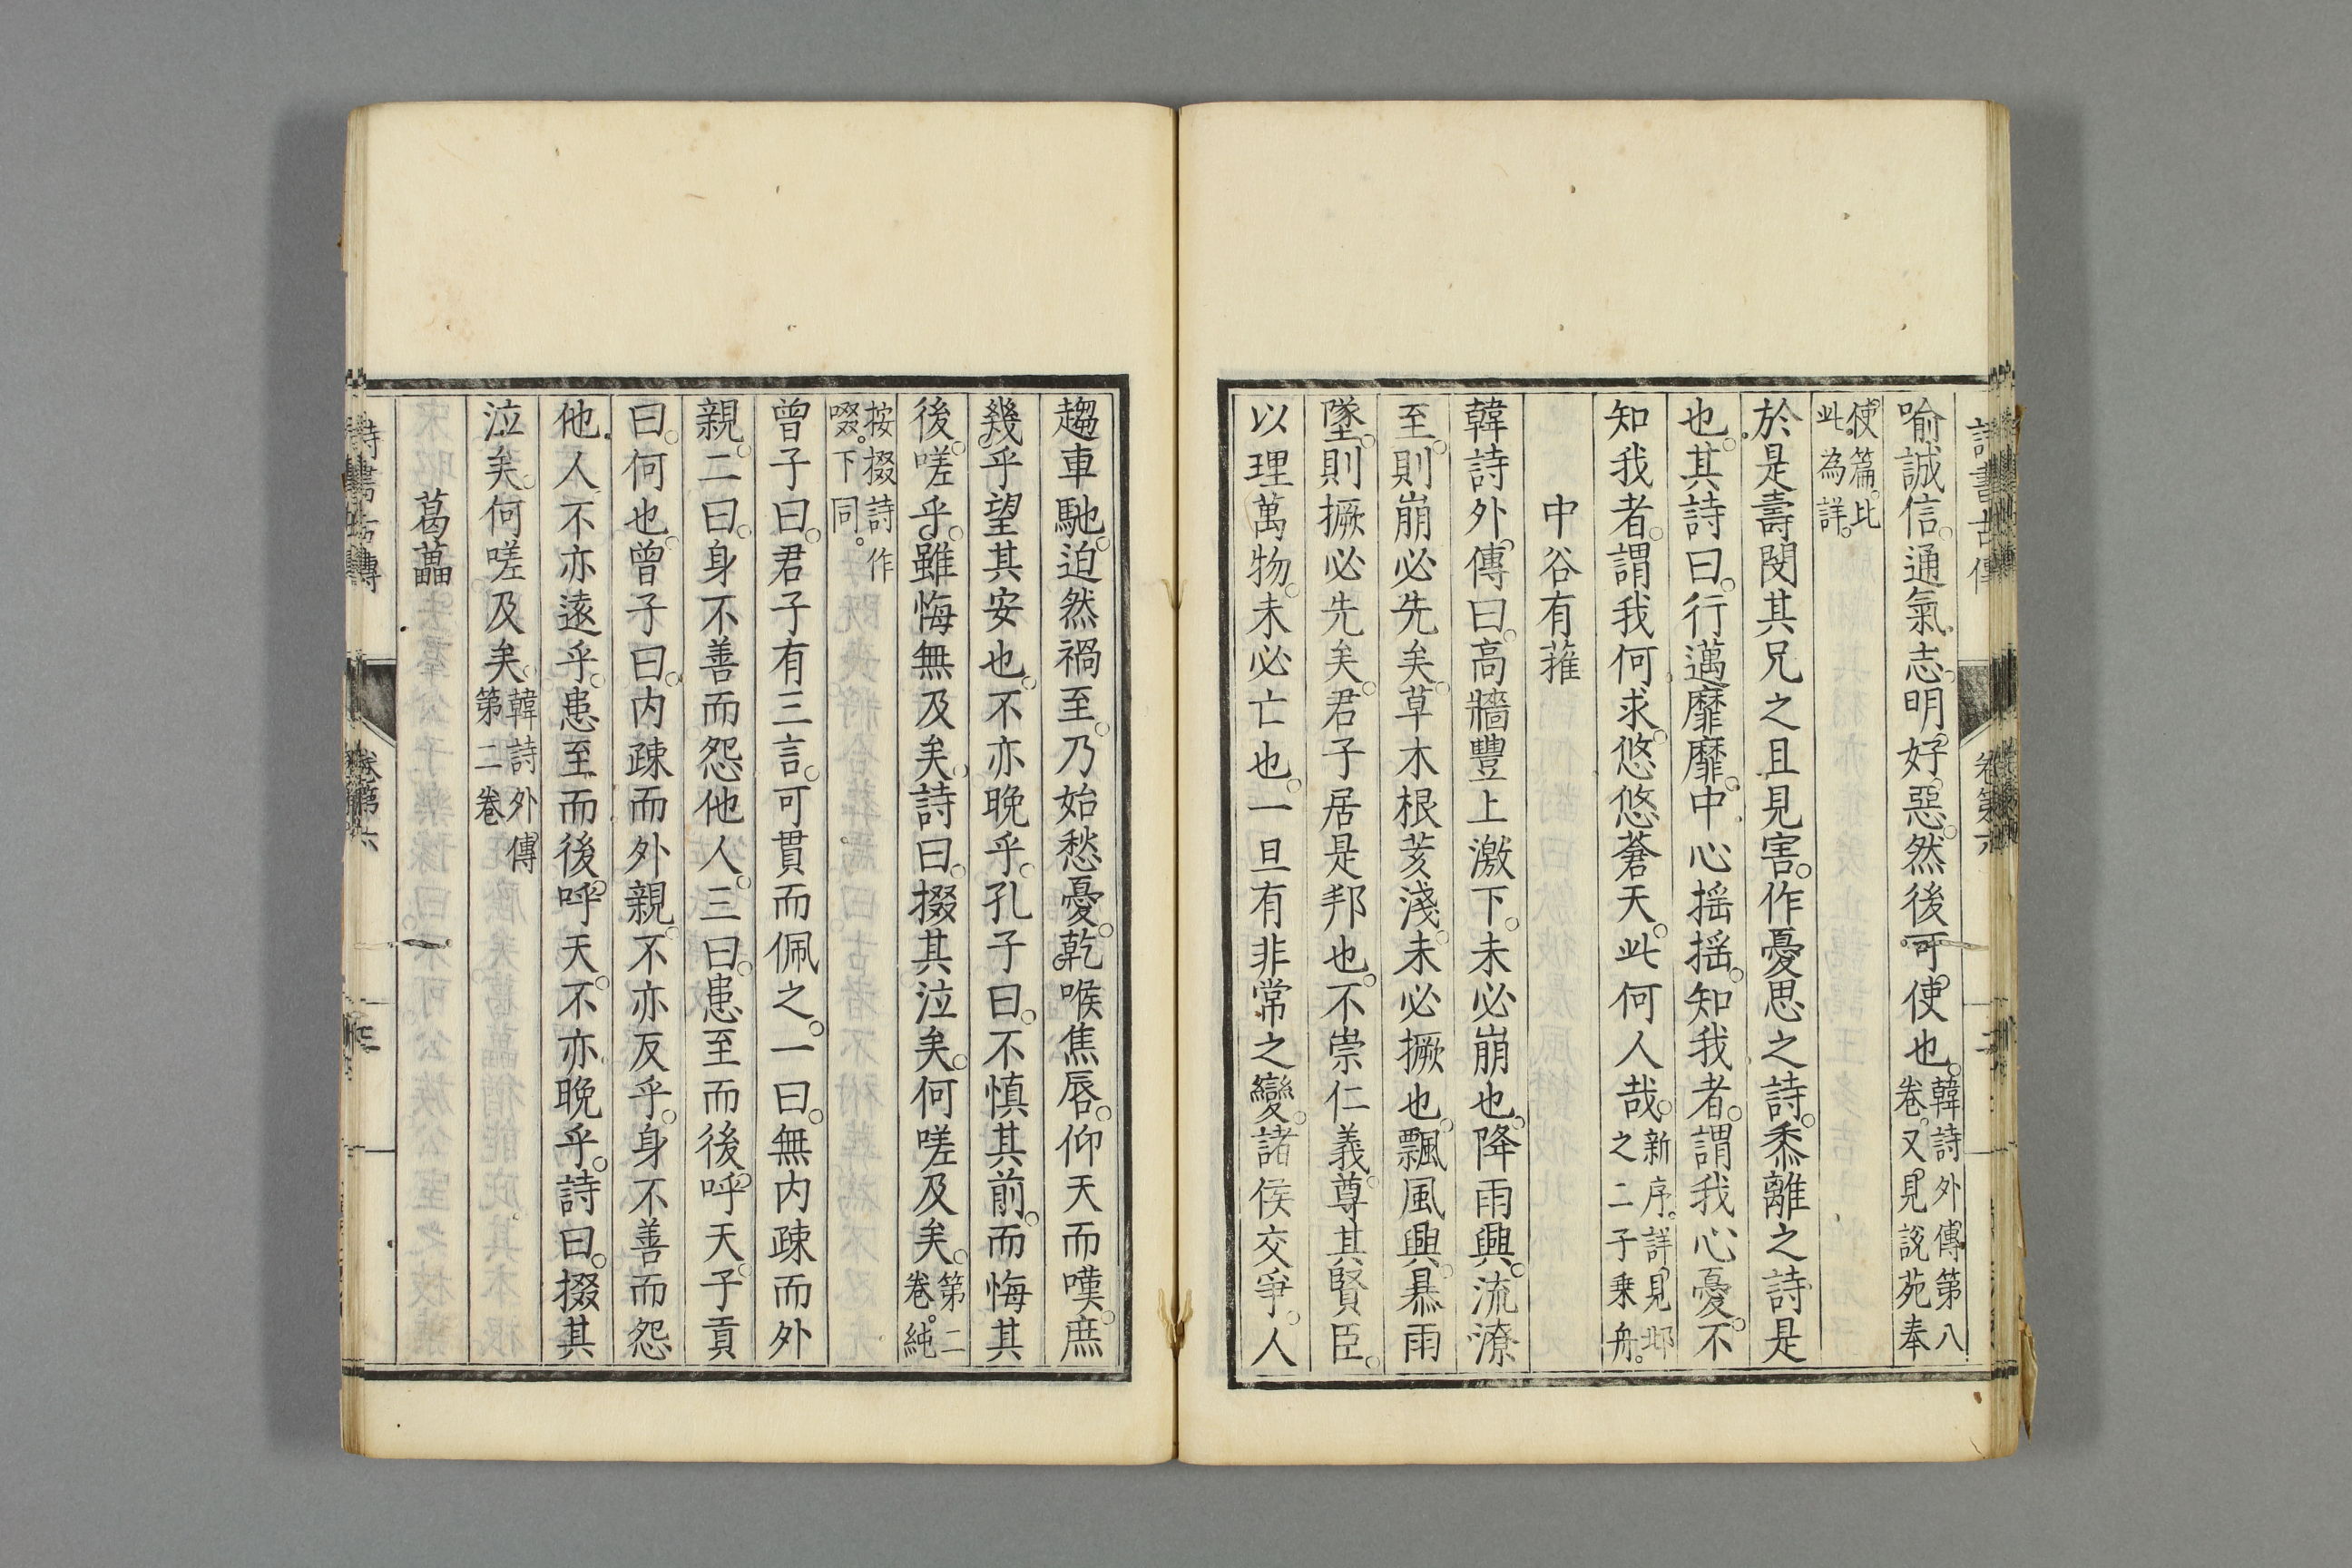 喻誠信。通氣志。明好惡。然後可使也。韓詩外傳第八卷。又見說苑奉
使篇。比此。為詳。
於是壽閔其兄之且見害。作憂思之詩。黍離之詩是
也。其詩曰。行邁靡靡。中心揺揺。知我者。謂我心憂。不
知我者。謂我何求。悠悠蒼天。此何人哉。新序。詳見邶之二子乗舟。
中谷有蓷
韓詩外傳曰。高牆豐上激下。未必崩也。降雨興。流潦
至。則崩必先矣。草木根荄淺。未必撅也。飄風興。暴雨
墜。則撅必先矣。君子居是邦也。不崇仁義。尊其賢臣。
以理萬物。未必亡也。一旦有非常之變。諸侯交爭。人
趨車馳。迫然禍至。乃始愁憂。乾喉焦唇。仰天而嘆。庶
幾乎望其安也。不亦晚乎。孔子曰。不慎其前。而悔其
後。嗟乎。雖悔無及矣。詩曰。掇其泣矣。何嗟及矣。第二卷。純
按掇詩作啜。下同。
曾子曰。君子有三言。可貫而佩之。一曰。無内疎而外
親。二曰。身不善而怨他人。三曰。患至而後呼天。子貢
曰。何也。曾子曰。内疎而外親。不亦反乎。身不善而怨
他人。不亦遠乎。患至而後呼天。不亦晚乎。詩曰。掇其
泣矣。何嗟及矣。韓詩外傳第二卷
葛藟